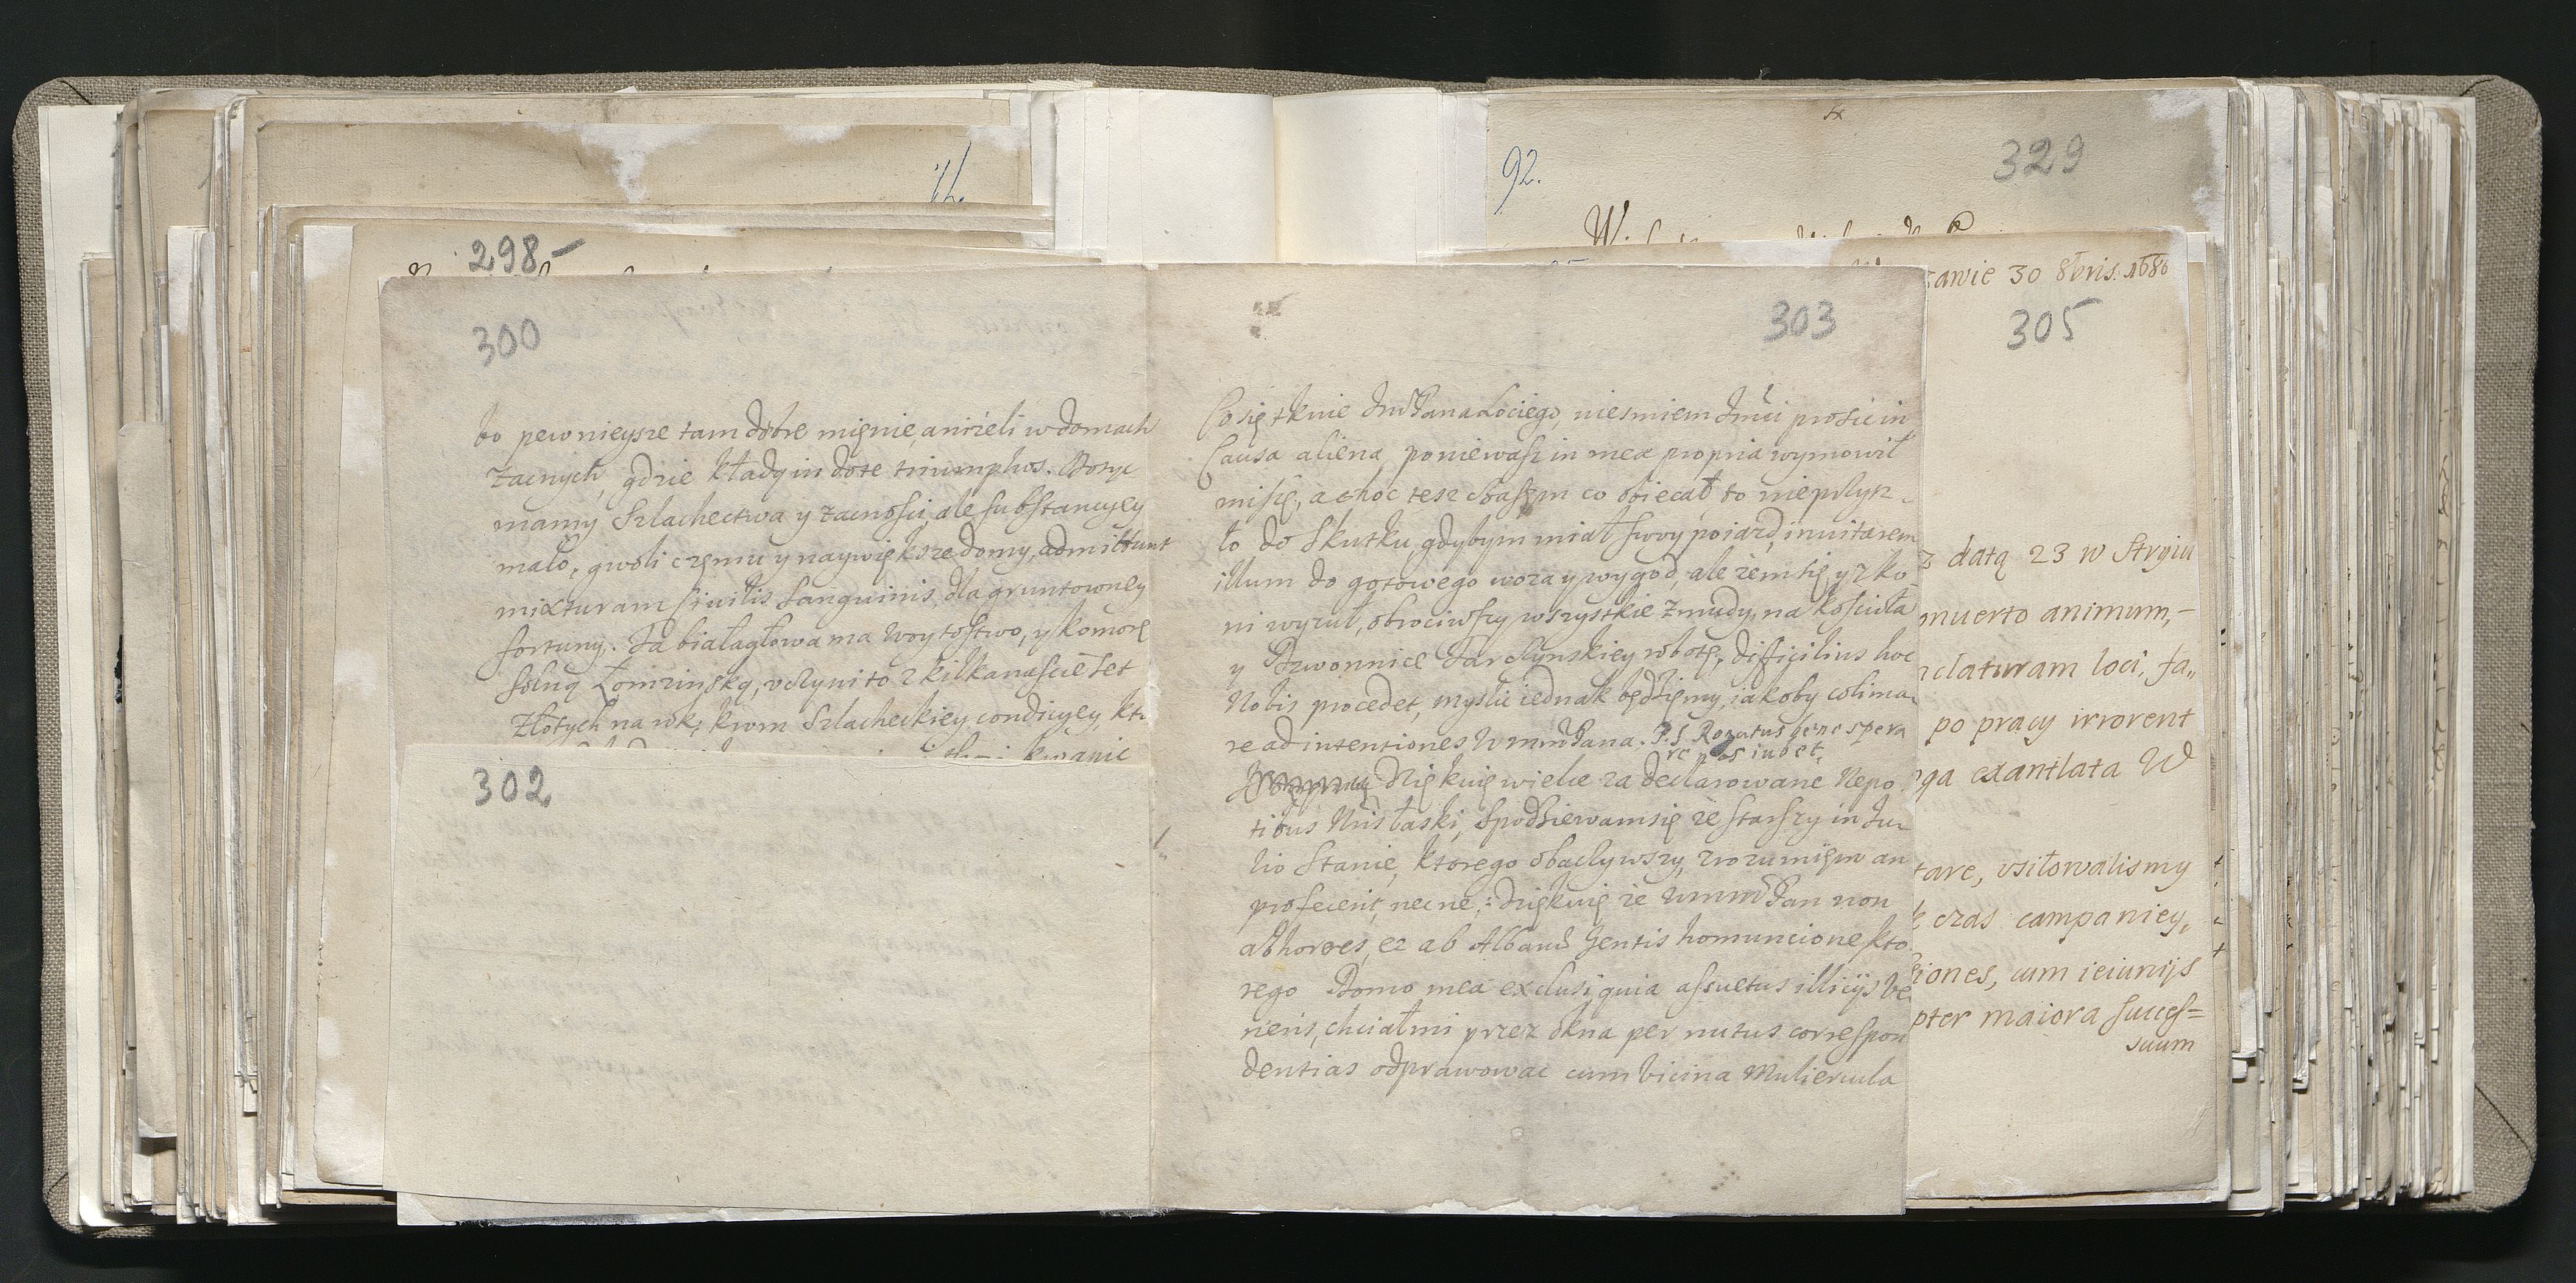 298-
300
bo pewnieysze tam dobre mięnie, aniżeli w domach
zacnych, gdzie kładą in dote triumphos. Dosyc
mamy Szlachectwa y zacnosci, ale substancyey
mało, gwoli częmu y naywiększe domy, admittunt
mixturam civilis sanguinis, dla gruntowney
fortuny. Ta białagłowa ma woytostwo, y komorę
solną Łomzinską, uczyni to z kilkanascie set
Złotych na rok, krom Szlacheckiey condicyey, kto
302
92.
329
303
Co się tknie JmPana Lociego, niesmiem Jmci prosic in
Causa aliena, poniewasz in mea propria wymowił
mi się, a choc tesz czasem co obiecał to nieprzysz-
ło do skutku, gdybym miał swoy poiazd, invitarem
illum do gotowego woza y wygod, ale żem się y z ko-
ni wyzuł, obrociwszy wszystkie zmudy, na koscioła
y Dzwonnice Tarczynskiey robotę, difficilius hoc
Nobis procedet, myslic iednak będziemy, iakoby colima-
re ad intentiones WmmPana. P.S. Rogatus bene spera
re nos iubet.
Dziękuię wielce za declarowane Nepo-
tibus Nris łaski, spodziewam się że starszy in Ju-
lio stanie, ktorego obaczywszy, zrozumięm an
profecerit, nec ne. Dziękuię że WmmPan non
abhorres, et ab Albana gentis homuncione, kto-
rego Domo mea exclusi, quia assuetus illicijs Ve-
neris, chciał mi przez okna per nutus correspon
dentias odprawowac cum vicina Muliercula
zawie 30 8bris. 1686
305
z datą 23 w Stryiu
muerto animum,-
nclaturam loci, fa,,
po pracy irrorent
ga exantlata W
tare, vsiłowalismy
czas campaniey,
iones, cum ieiunijs
pter maiora succes=
suum